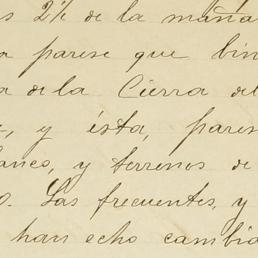 s 2½ de la maña
a parese que bin
a de la Cierra de
, y ésta, pares
lanco, y terrenos de
o. Las frecuentes, y
han echo cambia